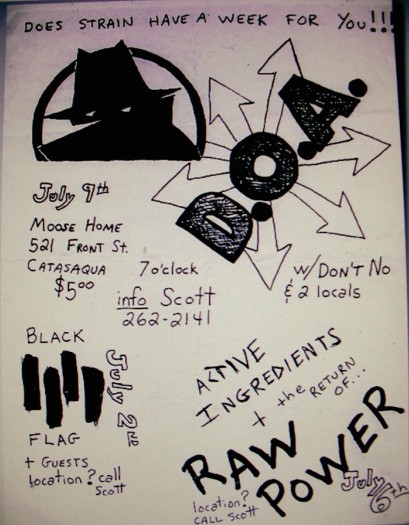 DOES STRAIN HAVE A WEEK FOR YOU!!!
D.O.A.
July 9th
MOOSE HOME
521 FRONT St.
CATASAQUA
$5.00
7 o'clock
info Scott
262-2141
w/ DON'T NO
& 2 locals
BLACK
FLAG
July 2nd
+ GUESTS
location? call
Scott
ACTIVE
INGREDIENTS
+ the RETURN
OF...
RAW
POWER
July
6th
location?
CALL Scott